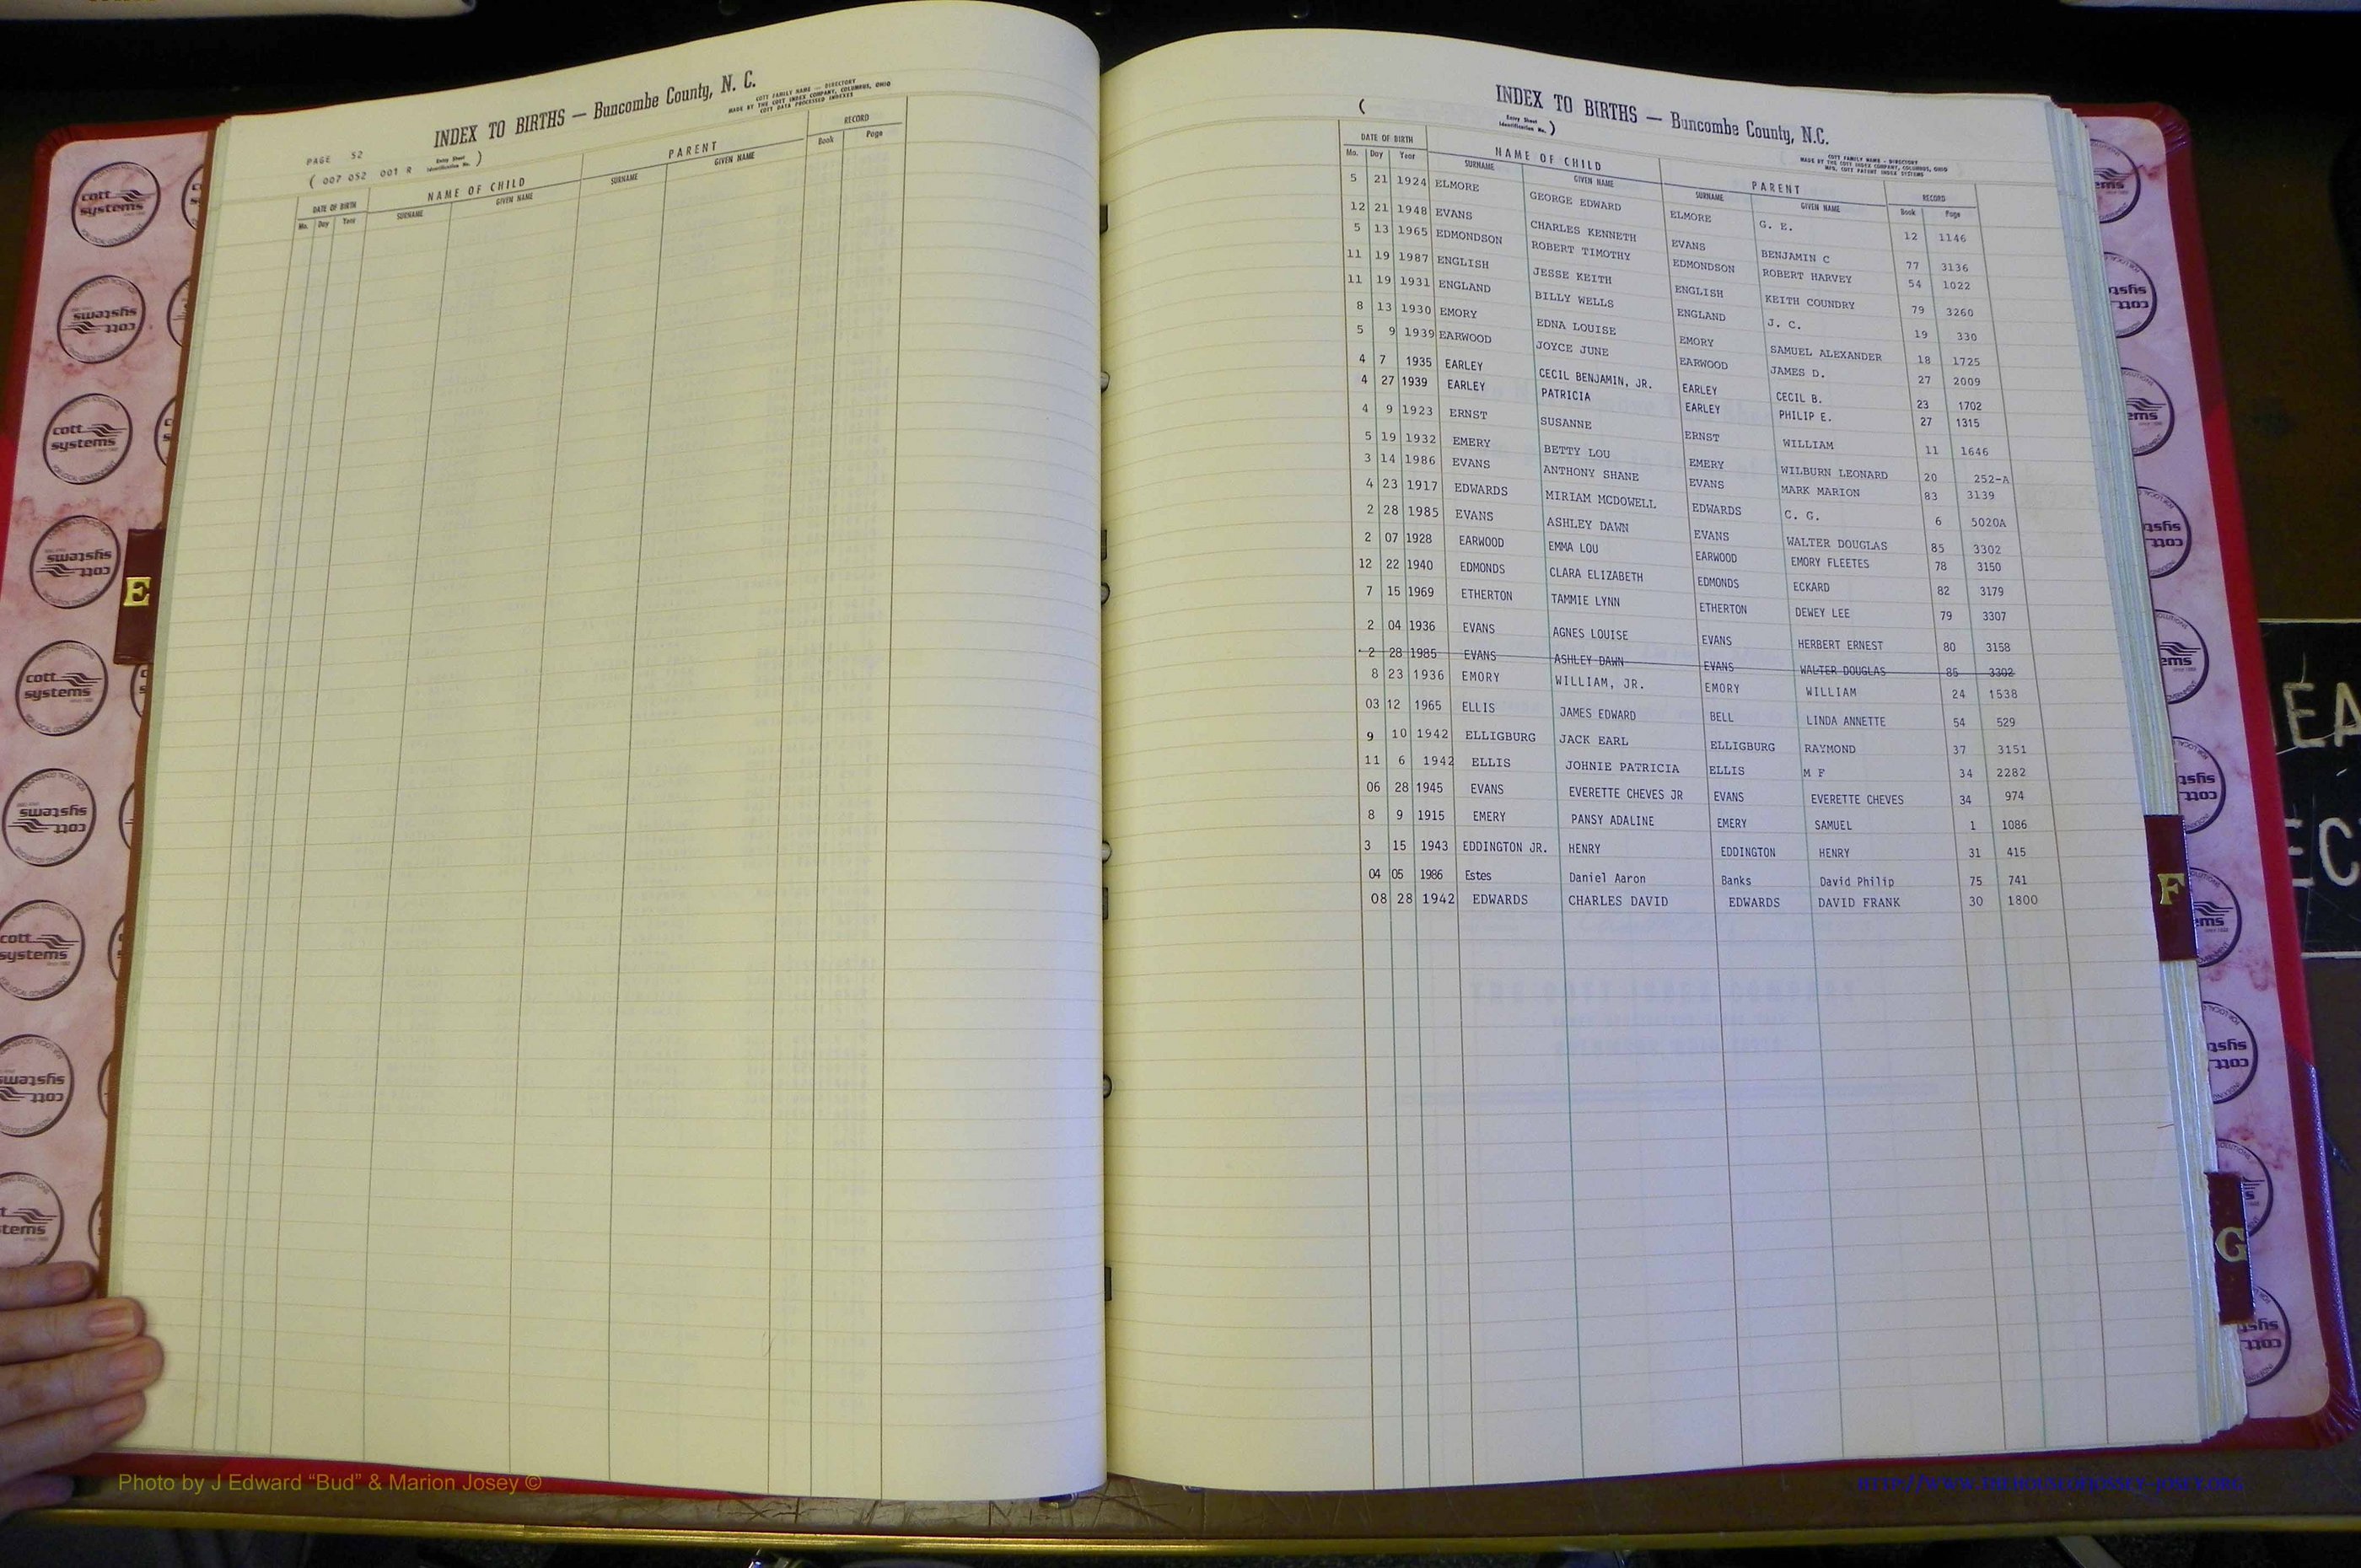 INDEX TO BIRTHS — Buncombe County, N. C.
COTT FAMILY NAME — DIRECTORY
MADE BY THE COTT INDEX COMPANY, COLUMBUS, OHIO
COTT DATA PROCESSED INDEXES
PAGE 52
( 007 052 001 R Entry Sheet Identification No. )
DATE OF BIRTH NAME OF CHILD PARENT RECORD
Mo. Day Year SURNAME GIVEN NAME SURNAME GIVEN NAME Book Page
INDEX TO BIRTHS — Buncombe County, N.C.
( Entry Sheet Identification No. )
COTT FAMILY NAME - DIRECTORY
MADE BY THE COTT INDEX COMPANY, COLUMBUS, OHIO
MFG. COTT PATENT INDEX SYSTEMS
DATE OF BIRTH NAME OF CHILD PARENT RECORD
Mo. Day Year SURNAME GIVEN NAME SURNAME GIVEN NAME Book Page
5 21 1924 ELMORE GEORGE EDWARD ELMORE G. E. 12 1146
12 21 1948 EVANS CHARLES KENNETH EVANS BENJAMIN C 77 3136
5 13 1965 EDMONDSON ROBERT TIMOTHY EDMONDSON ROBERT HARVEY 54 1022
11 19 1987 ENGLISH JESSE KEITH ENGLISH KEITH COUNDRY 79 3260
11 19 1931 ENGLAND BILLY WELLS ENGLAND J. C. 19 330
8 13 1930 EMORY EDNA LOUISE EMORY SAMUEL ALEXANDER 18 1725
5 9 1939 EARWOOD JOYCE JUNE EARWOOD JAMES D. 27 2009
4 7 1935 EARLEY CECIL BENJAMIN, JR. EARLEY CECIL B. 23 1702
4 27 1939 EARLEY PATRICIA EARLEY PHILIP E. 27 1315
4 9 1923 ERNST SUSANNE ERNST WILLIAM 11 1646
5 19 1932 EMERY BETTY LOU EMERY WILBURN LEONARD 20 252-A
3 14 1986 EVANS ANTHONY SHANE EVANS MARK MARION 83 3139
4 23 1917 EDWARDS MIRIAM MCDOWELL EDWARDS C. G. 6 5020A
2 28 1985 EVANS ASHLEY DAWN EVANS WALTER DOUGLAS 85 3302
2 07 1928 EARWOOD EMMA LOU EARWOOD EMORY FLEETES 78 3150
12 22 1940 EDMONDS CLARA ELIZABETH EDMONDS ECKARD 82 3179
7 15 1969 ETHERTON TAMMIE LYNN ETHERTON DEWEY LEE 79 3307
2 04 1936 EVANS AGNES LOUISE EVANS HERBERT ERNEST 80 3158
2 28 1985 EVANS ASHLEY DAWN EVANS WALTER DOUGLAS 85 3302
8 23 1936 EMORY WILLIAM, JR. EMORY WILLIAM 24 1538
03 12 1965 ELLIS JAMES EDWARD BELL LINDA ANNETTE 54 529
9 10 1942 ELLIGBURG JACK EARL ELLIGBURG RAYMOND 37 3151
11 6 1942 ELLIS JOHNIE PATRICIA ELLIS M F 34 2282
06 28 1945 EVANS EVERETTE CHEVES JR EVANS EVERETTE CHEVES 34 974
8 9 1915 EMERY PANSY ADALINE EMERY SAMUEL 1 1086
3 15 1943 EDDINGTON JR. HENRY EDDINGTON HENRY 31 415
04 05 1986 Estes Daniel Aaron Banks David Philip 75 741
08 28 1942 EDWARDS CHARLES DAVID EDWARDS DAVID FRANK 30 1800
E
F
G
cott systems
Photo by J Edward “Bud” & Marion Josey ©
HTTP://WWW.THEHOUSEOFJOSSEY-JOSEY.ORG